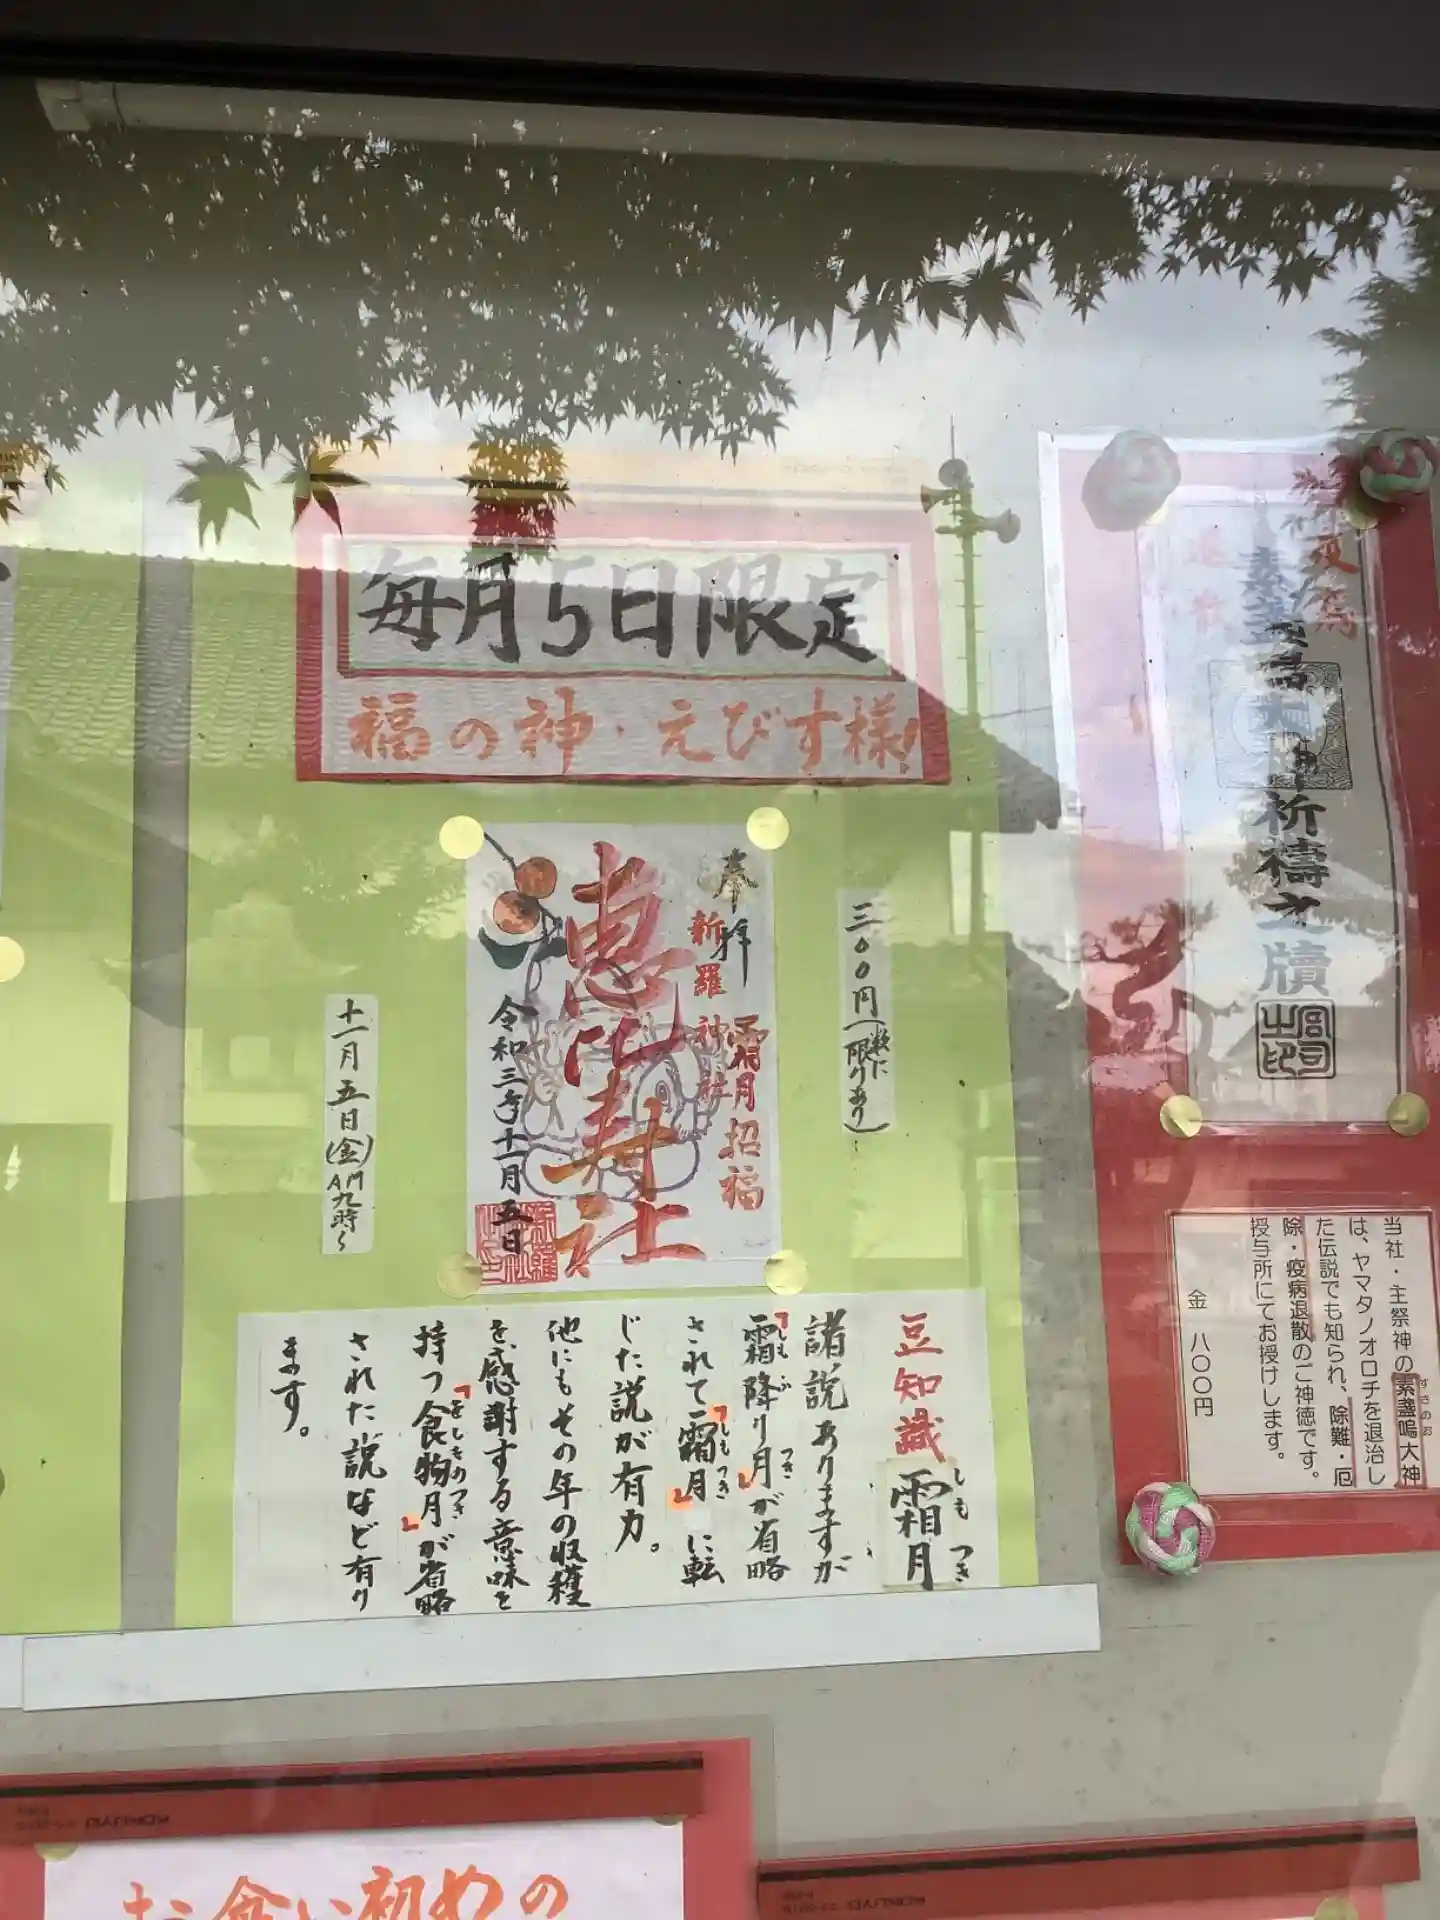 毎月5日限定
福の神・えびす様!
奉拝
霜月招福
新羅神社
恵比寿社
令和三年十一月五日
三〇〇円(数に限りあり)
十一月五日(金)AM九時〜
豆知識
霜月
しもつき
諸説ありますが
「霜降り月」が省略
しもふ つき
されて「霜月」に転
しもつき
じた説が有力。
他にもその年の収穫
を、感謝する意味を
持つ「食物月」が省略
をしものつき
された説など有り
ます。
疫病
退散
素盞嗚大神祈祷之牘
宮司之印
当社・主祭神の素盞嗚大神
すさのお
は、ヤマタノオロチを退治し
た伝説でも知られ、除難・厄
除・疫病退散のご神徳です。
授与所にてお授けします。
金 八〇〇円
お食い初めの